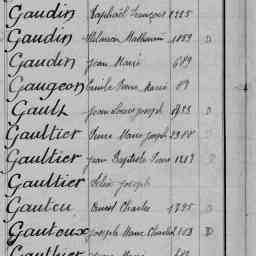 Gaudin Raphaël François 1225
Gaudin Mathurin 1059 D
Gaudin Jean Marie 689
Gaugeon Emile Pierre Marie 89
Gault Jean Louis Joseph D
Gaultier Pierre Marie Joseph D
Gaultier Jean Baptiste Pierre 1213 D
Gaultier Joseph
Gauteu Ernest Charles 1295 D
Gautoux Joseph Marie Charles 103 D
Gauthier Marie